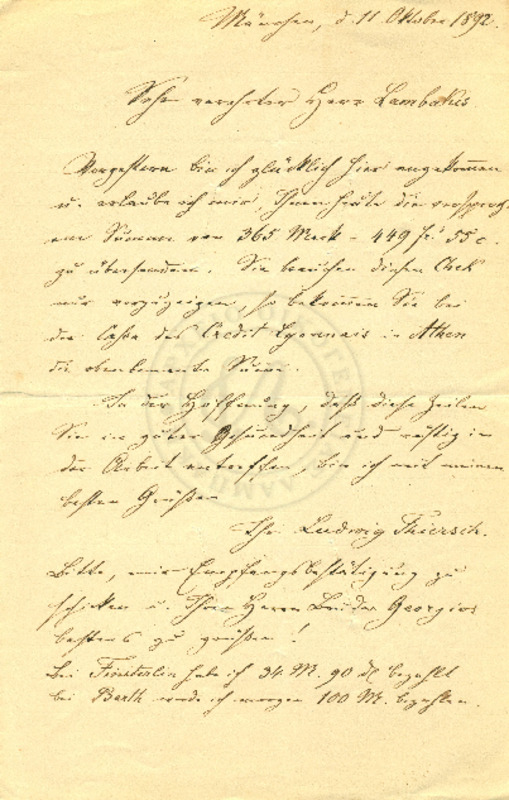 München, d. 11 Oktober 1892.
Sehr verehrter Herr Lambakis
Vorgestern bin ich glücklich hier angekommen
u. erlaube ich mir, Ihnen heute die versproch-
ene Summe von 365 Mark = 449 fr. 55 c.
zu übersenden. Sie brauchen diesen Chek
nur vorzuzeigen, so bekommen Sie bei
der Cassa des Credit Lyonnais in Athen
die obenbenannte Summe.
In der Hoffnung, daß diese Zeilen
Sie in guter Gesundheit und rüstig in
der Arbeit antreffen, bin ich mit meinen
besten Grüßen
Ihr Ludwig Thiersch.
Bitte, mir Empfangsbestätigung zu
schicken u. Ihren Herrn Bruder Georgios
bestens zu grüßen!
Bei Finsterlin habe ich 34 M. 90 bezahlt
bei Barth werde ich morgen 100 M. bezahlen.